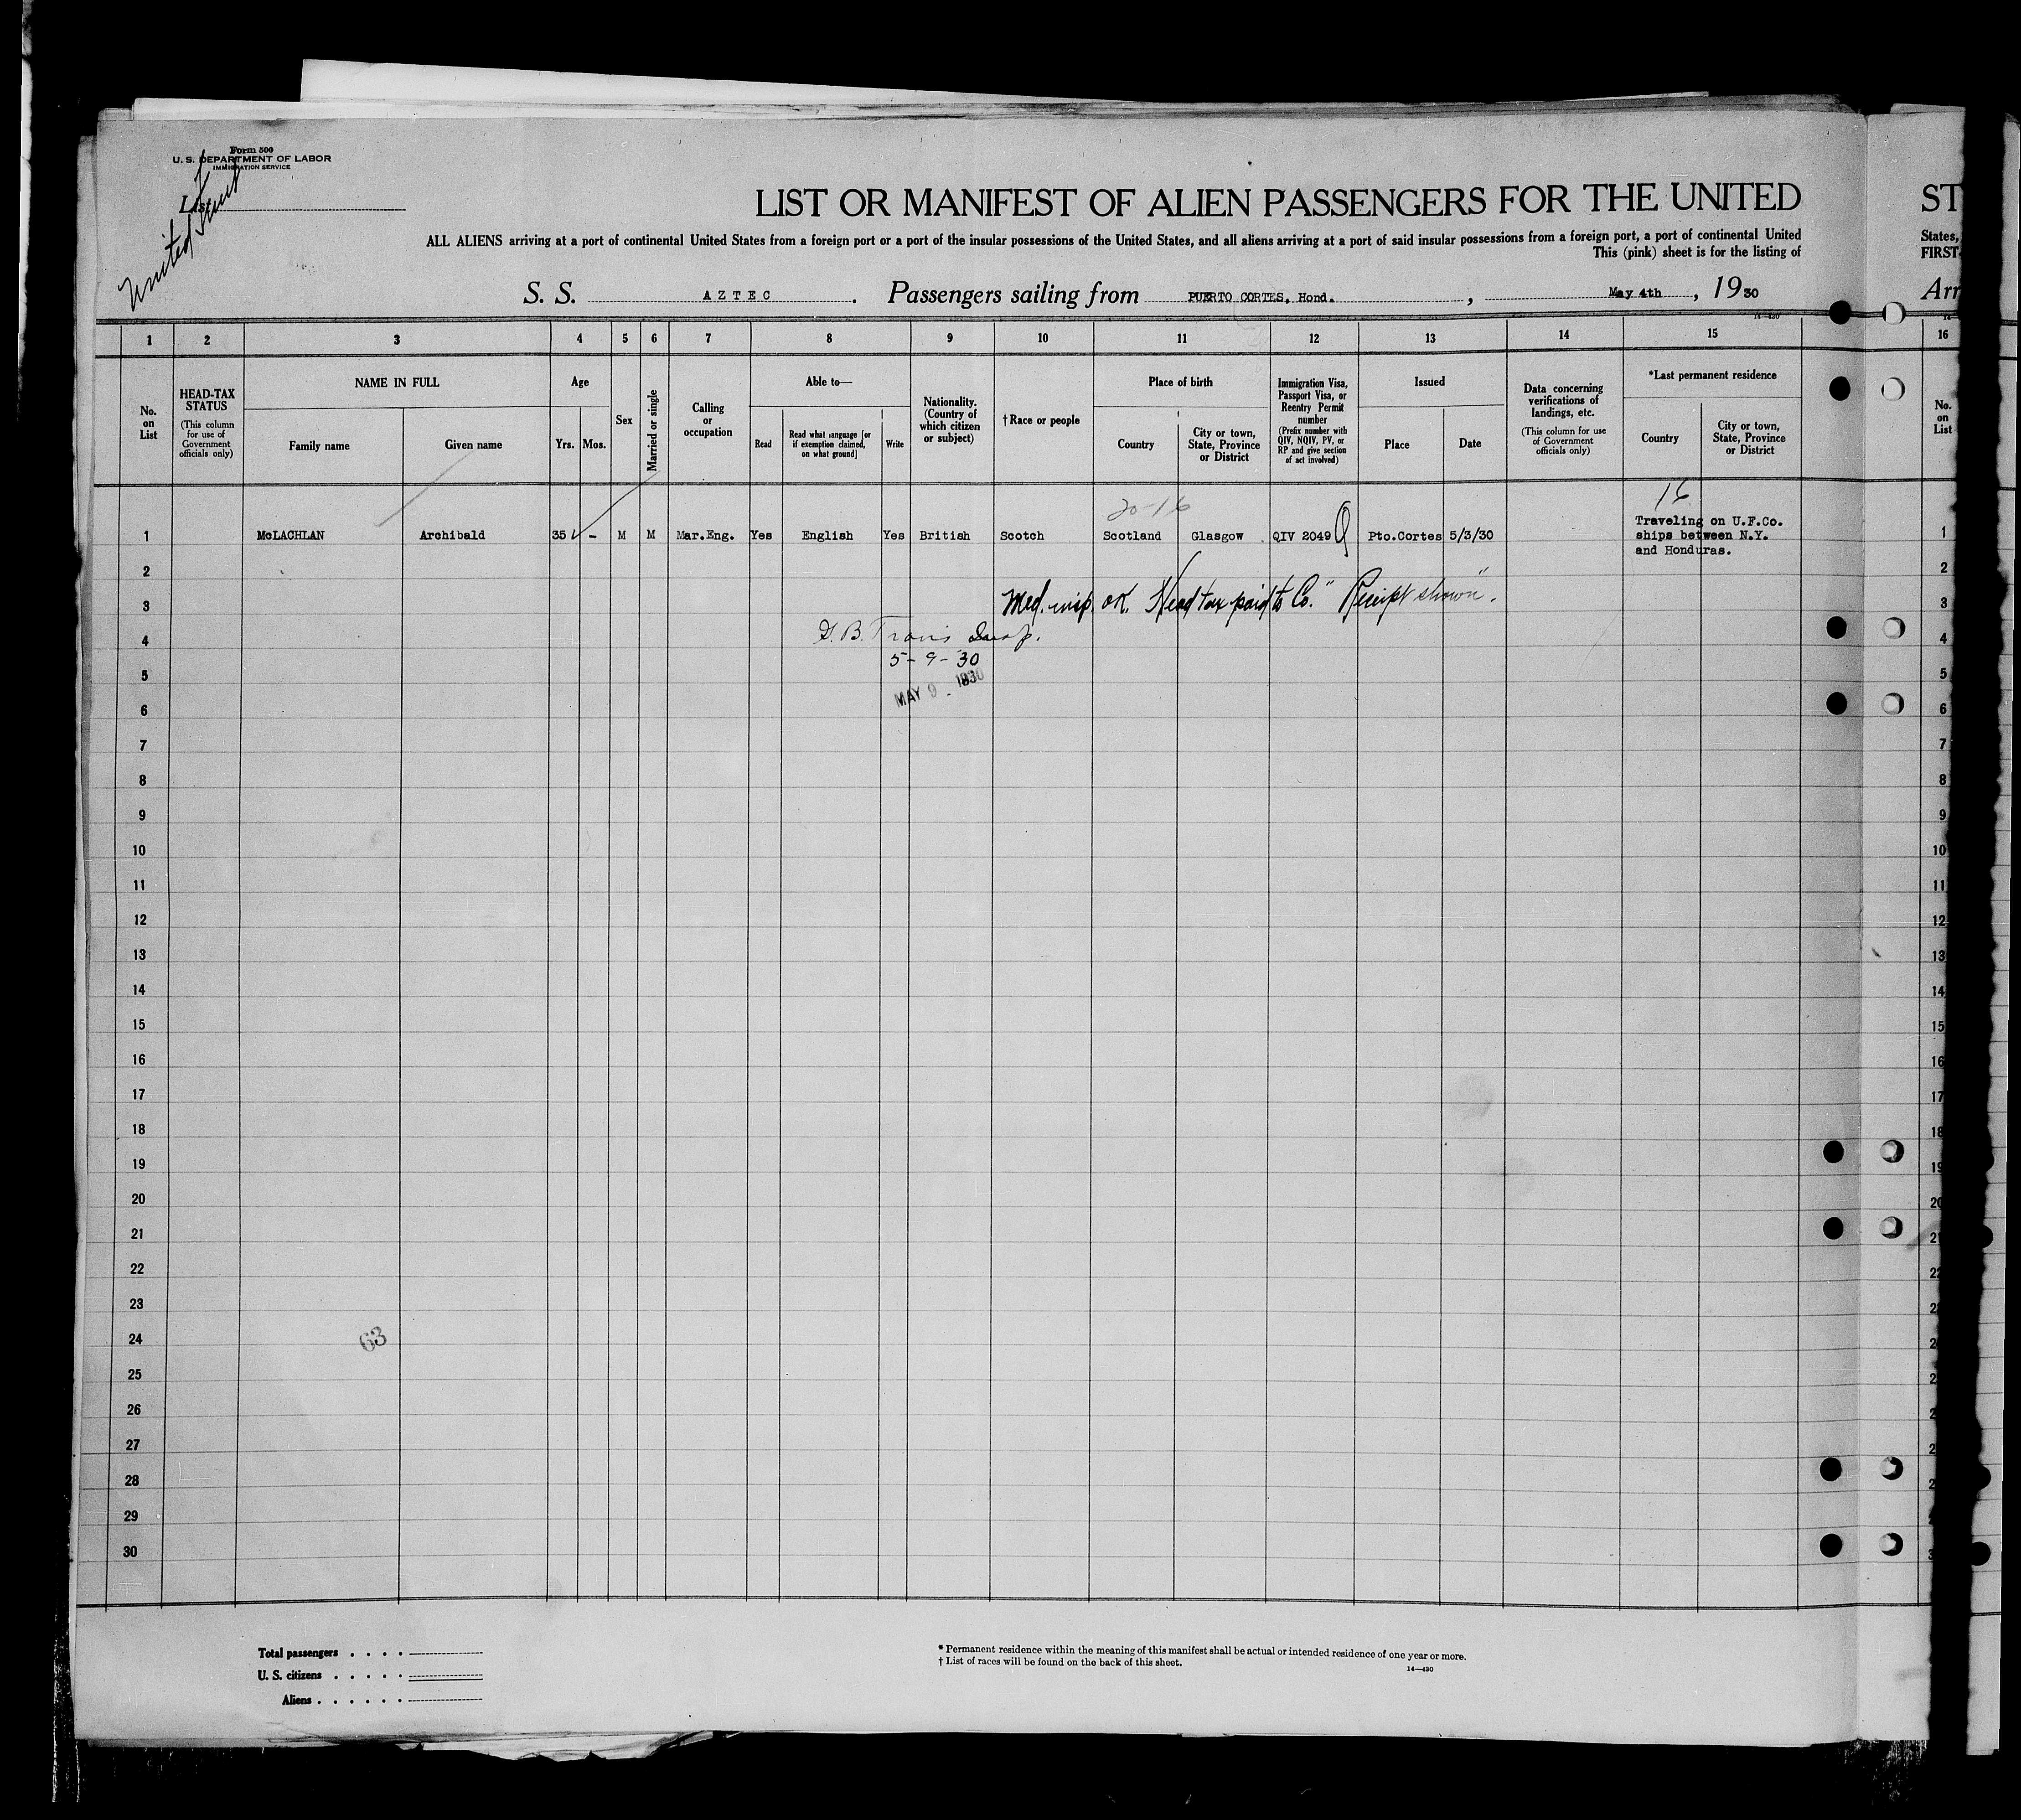 Form 500
U. S. DEPARTMENT OF LABOR
IMMIGRATION SERVICE
List
United Fruit
LIST OR MANIFEST OF ALIEN PASSENGERS FOR THE UNITED
ST
ALL ALIENS arriving at a port of continental United States from a foreign port or a port of the insular possessions of the United States, and all aliens arriving at a port of said insular possessions from a foreign port, a port of continental United
States,
This (pink) sheet is for the listing of
FIRST-
S. S. AZTEC. Passengers sailing from PUERTO CORTES, Hond., May 4th, 1930
Arr
14-420
1 2 3 4 5 6 7 8 9 10 11 12 13 14 15 16
No. on List
HEAD-TAX STATUS (This column for use of Government officials only)
NAME IN FULL
Family name
Given name
Age
Yrs. Mos.
Sex
Married or single
Calling or occupation
Able to—
Read
Read what language [or if exemption claimed, on what ground]
Write
Nationality. (Country of which citizen or subject)
† Race or people
Place of birth
Country
City or town, State, Province or District
Immigration Visa, Passport Visa, or Reentry Permit number (Prefix number with QIV, NQIV, PV, or RP and give section of act involved)
Issued
Place
Date
Data concerning verifications of landings, etc. (This column for use of Government officials only)
*Last permanent residence
Country
City or town, State, Province or District
No. on List
20-16
16
1 McLACHLAN Archibald 35 - M M Mar.Eng. Yes English Yes British Scotch Scotland Glasgow QIV 2049 Pto.Cortes 5/3/30 Traveling on U.F.Co. ships between N.Y. and Honduras. 1
2 2
Med. insp. OK. Head tax paid to Co. "Receipt shown".
3 3
Travis Insp.
4 4
5-9-30
5 5
MAY 9 - 1930
6 6
7 7
8 8
9 9
10 10
11 11
12 12
13 13
14 14
15 15
16 16
17 17
18 18
19 19
20 20
21 21
22 22
23
24
63
25
26
27
28
29
30
Total passengers . . . .
U. S. citizens . . . . .
Aliens . . . . . .
* Permanent residence within the meaning of this manifest shall be actual or intended residence of one year or more.
† List of races will be found on the back of this sheet.
14—420